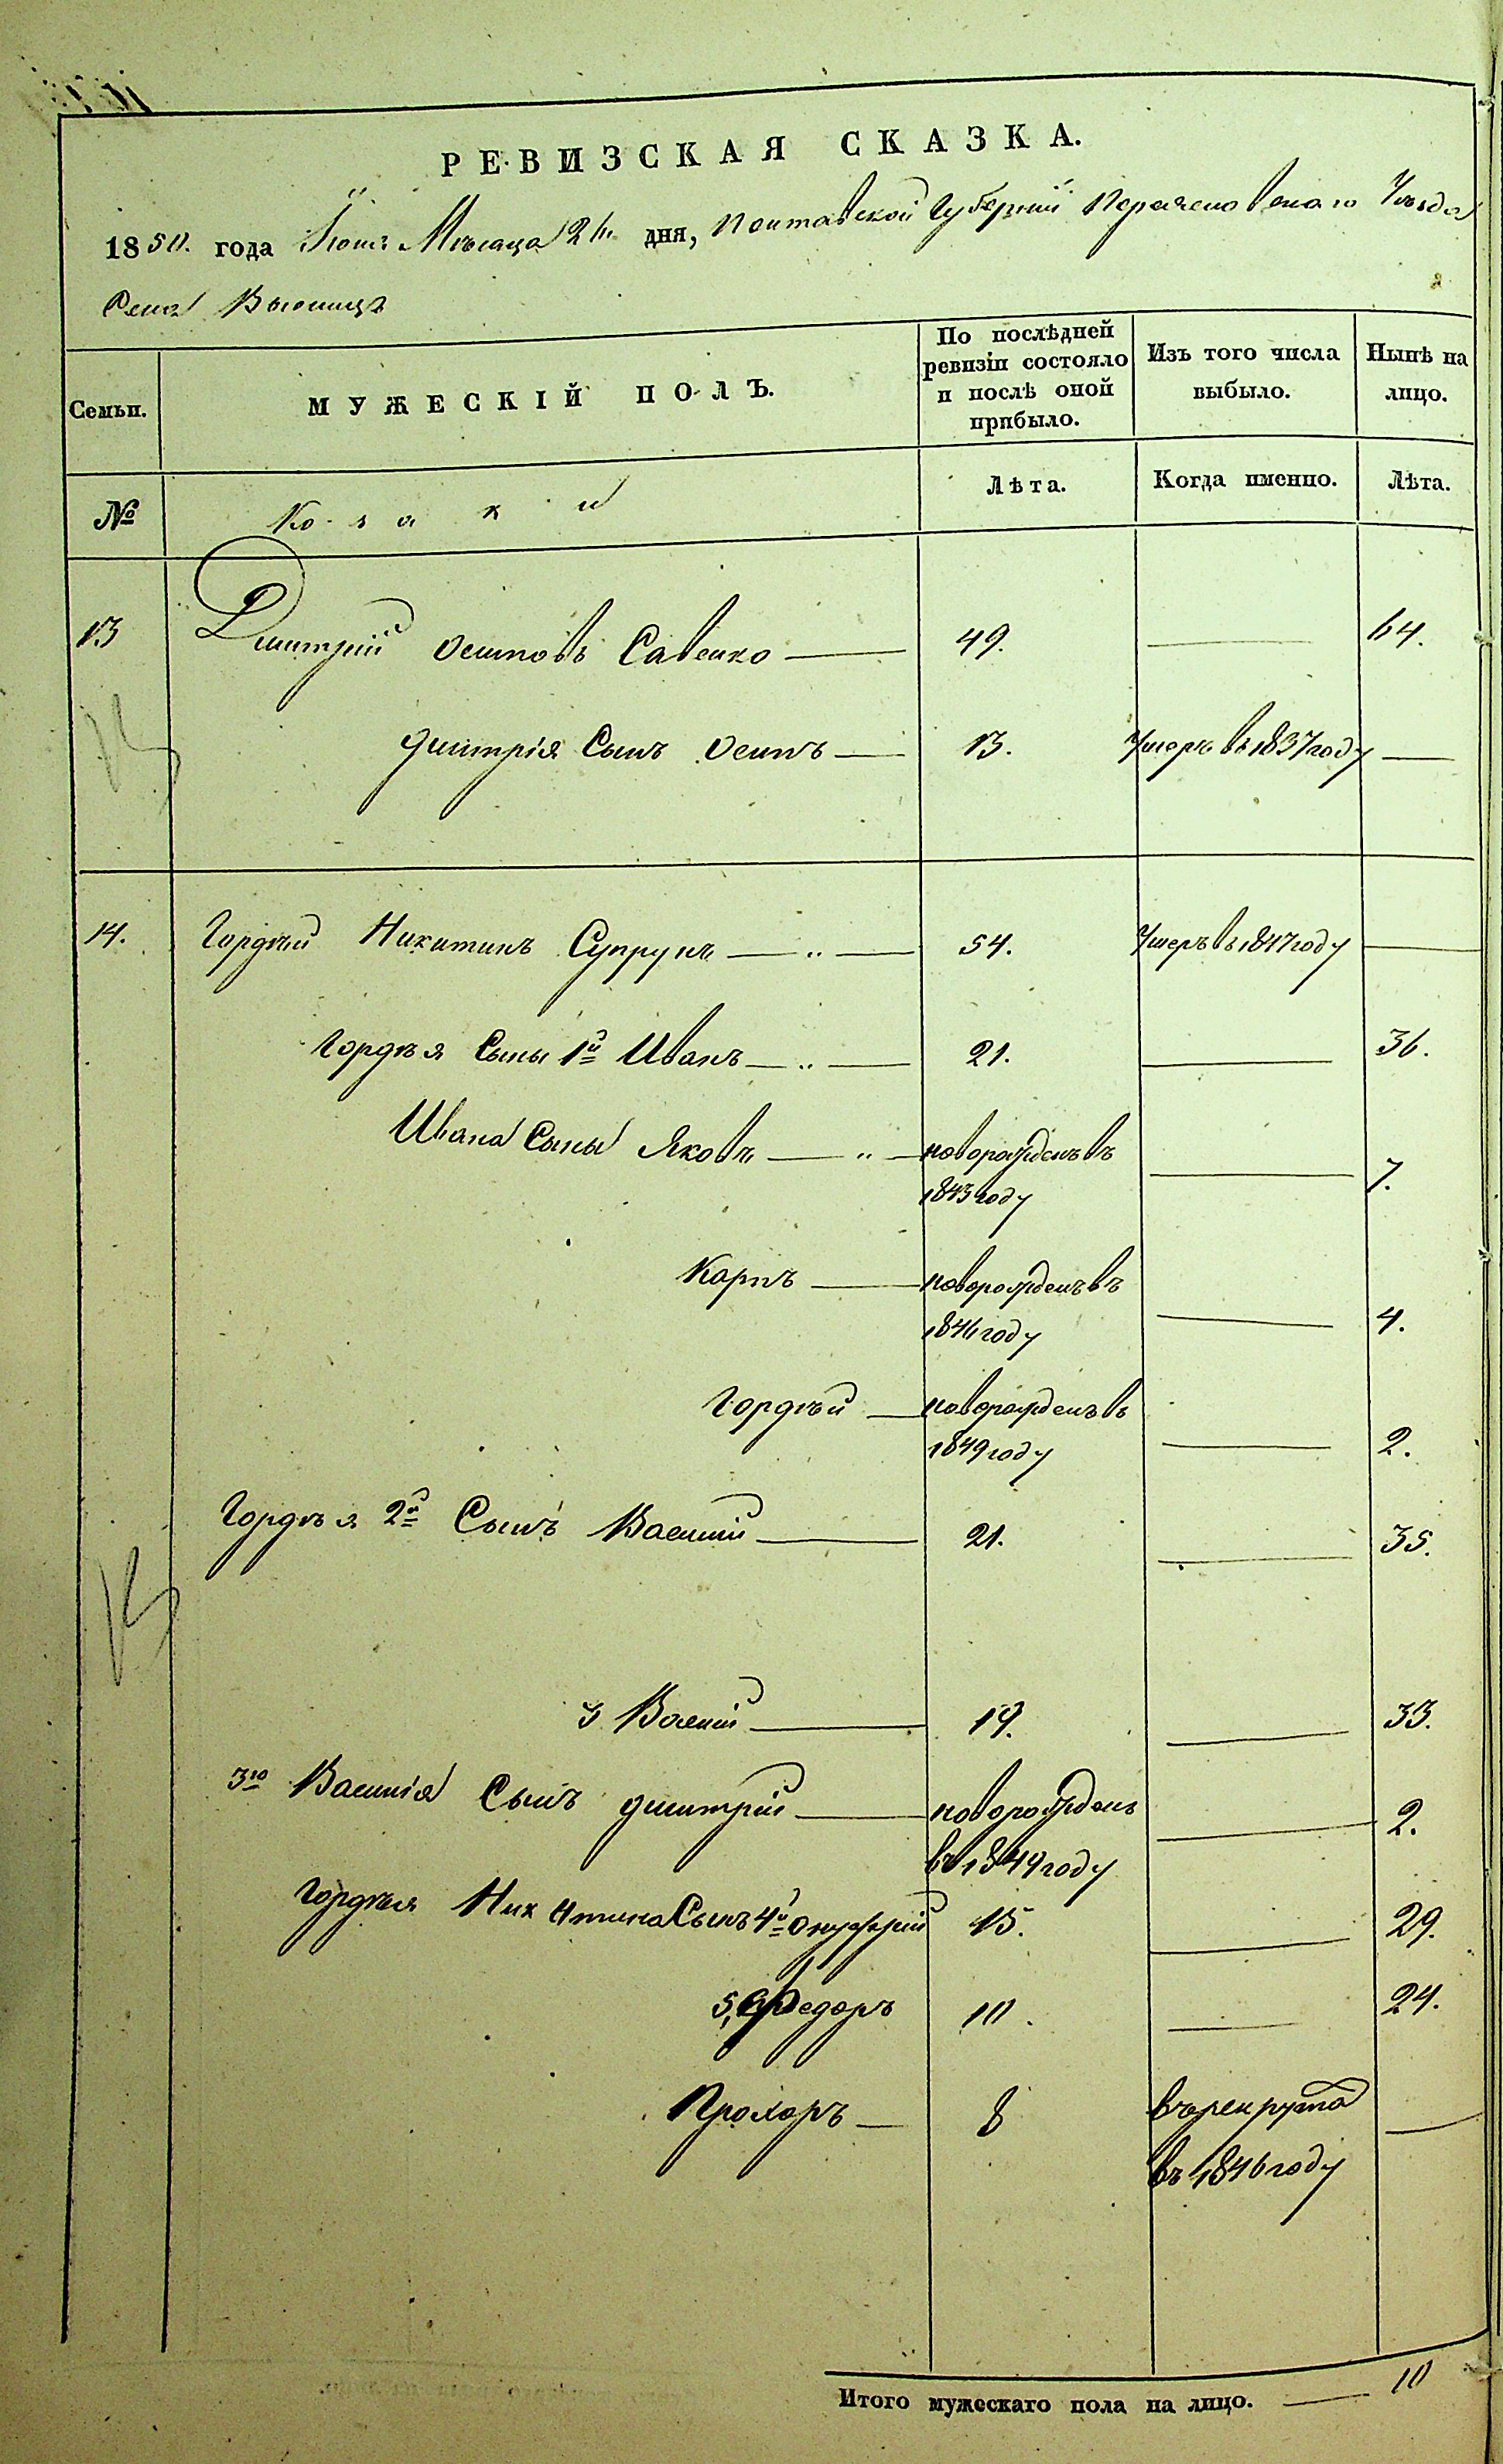 РЕВИЗСКАЯ СКАЗКА.
1850. года Іюня Мѣсяца 26 дня, Полтавской Губерніи Переяславскаго Уѣзда
Села Вьюнищъ
Семьи.
МУЖЕСКІЙ ПОЛЪ.
По послѣдней ревизіи состояло и послѣ оной прибыло.
Изъ того числа выбыло.
Нынѣ на лицо.
№
Козаки
Лѣта.
Когда именно.
Лѣта.
13 Дмитрій Осиповъ Савенко — 49. — 64.
Дмитрія Сынъ Осипъ — 13. Умеръ въ 1837 году —
14. Гордѣй Никитинъ Супрунъ — 54. Умеръ въ 1847 году —
Гордѣя Сыны 1й Иванъ — 21. — 36.
Ивана Сыны Яковъ — новорожденъ въ — 7.
1843 году
Карпъ — новорожденъ въ
1846 году — 4.
Гордѣй — новорожденъ въ
1849 году — 2.
Гордѣя 2й Сынъ Василій — 21. — 35.
3 Василій — 19. — 33.
3го Василія Сынъ Дмитрій — новорожденъ — 2.
въ 1849 году
Гордѣя Никитина Сынъ 4й Онуфрій 15. — 29.
5, Федоръ 10. — 24.
Прохоръ — 8 въ рекрута —
въ 1846 году
Итого мужескаго пола на лицо. — 10